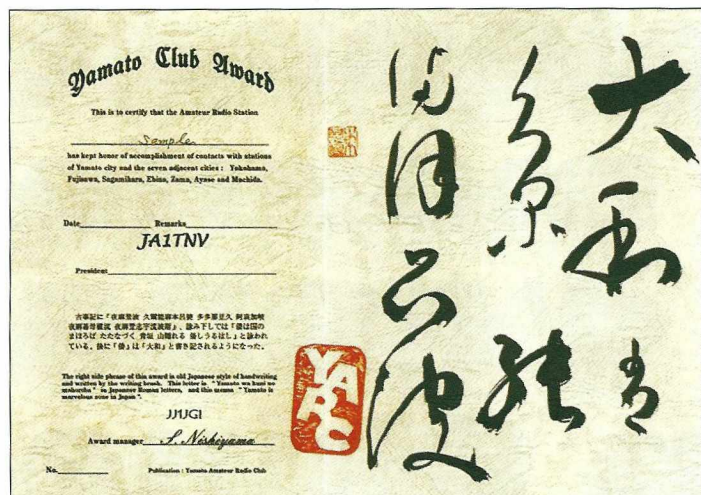 Yamato Club Award
This is to certify that the Amateur Radio Station
Sample
has kept honor of accomplishment of contacts with stations
of Yamato city and the seven adjacent cities : Yokohama,
Fujisawa, Sagamihara, Ebina, Zama, Ayase and Machida.
Date Remarks
JA1TNV
President
古事記に「夜麻登波 久爾能麻本呂婆 多多那豆久 阿哀加岐
夜麻碁母禮流 夜麻登志宇流波斯」、詠み下しては「倭は国の
まほろば たたなづく 青垣 山隠れる 倭しうるはし」と詠われ
ている。後に「倭」は「大和」と書き記されるようになった。
The right side phrase of this award is old Japanese style of handwriting
and written by the writing brush. This letter is " Yamato wa kuni no
mahoroba " in Japanese Roman letters, and this means " Yamato is
marvelous zone in Japan ".
JJ1JGI
Award manager S. Nishiyama
No. Publication : Yamato Amateur Radio Club
YARC
大和者
久 能
呂波